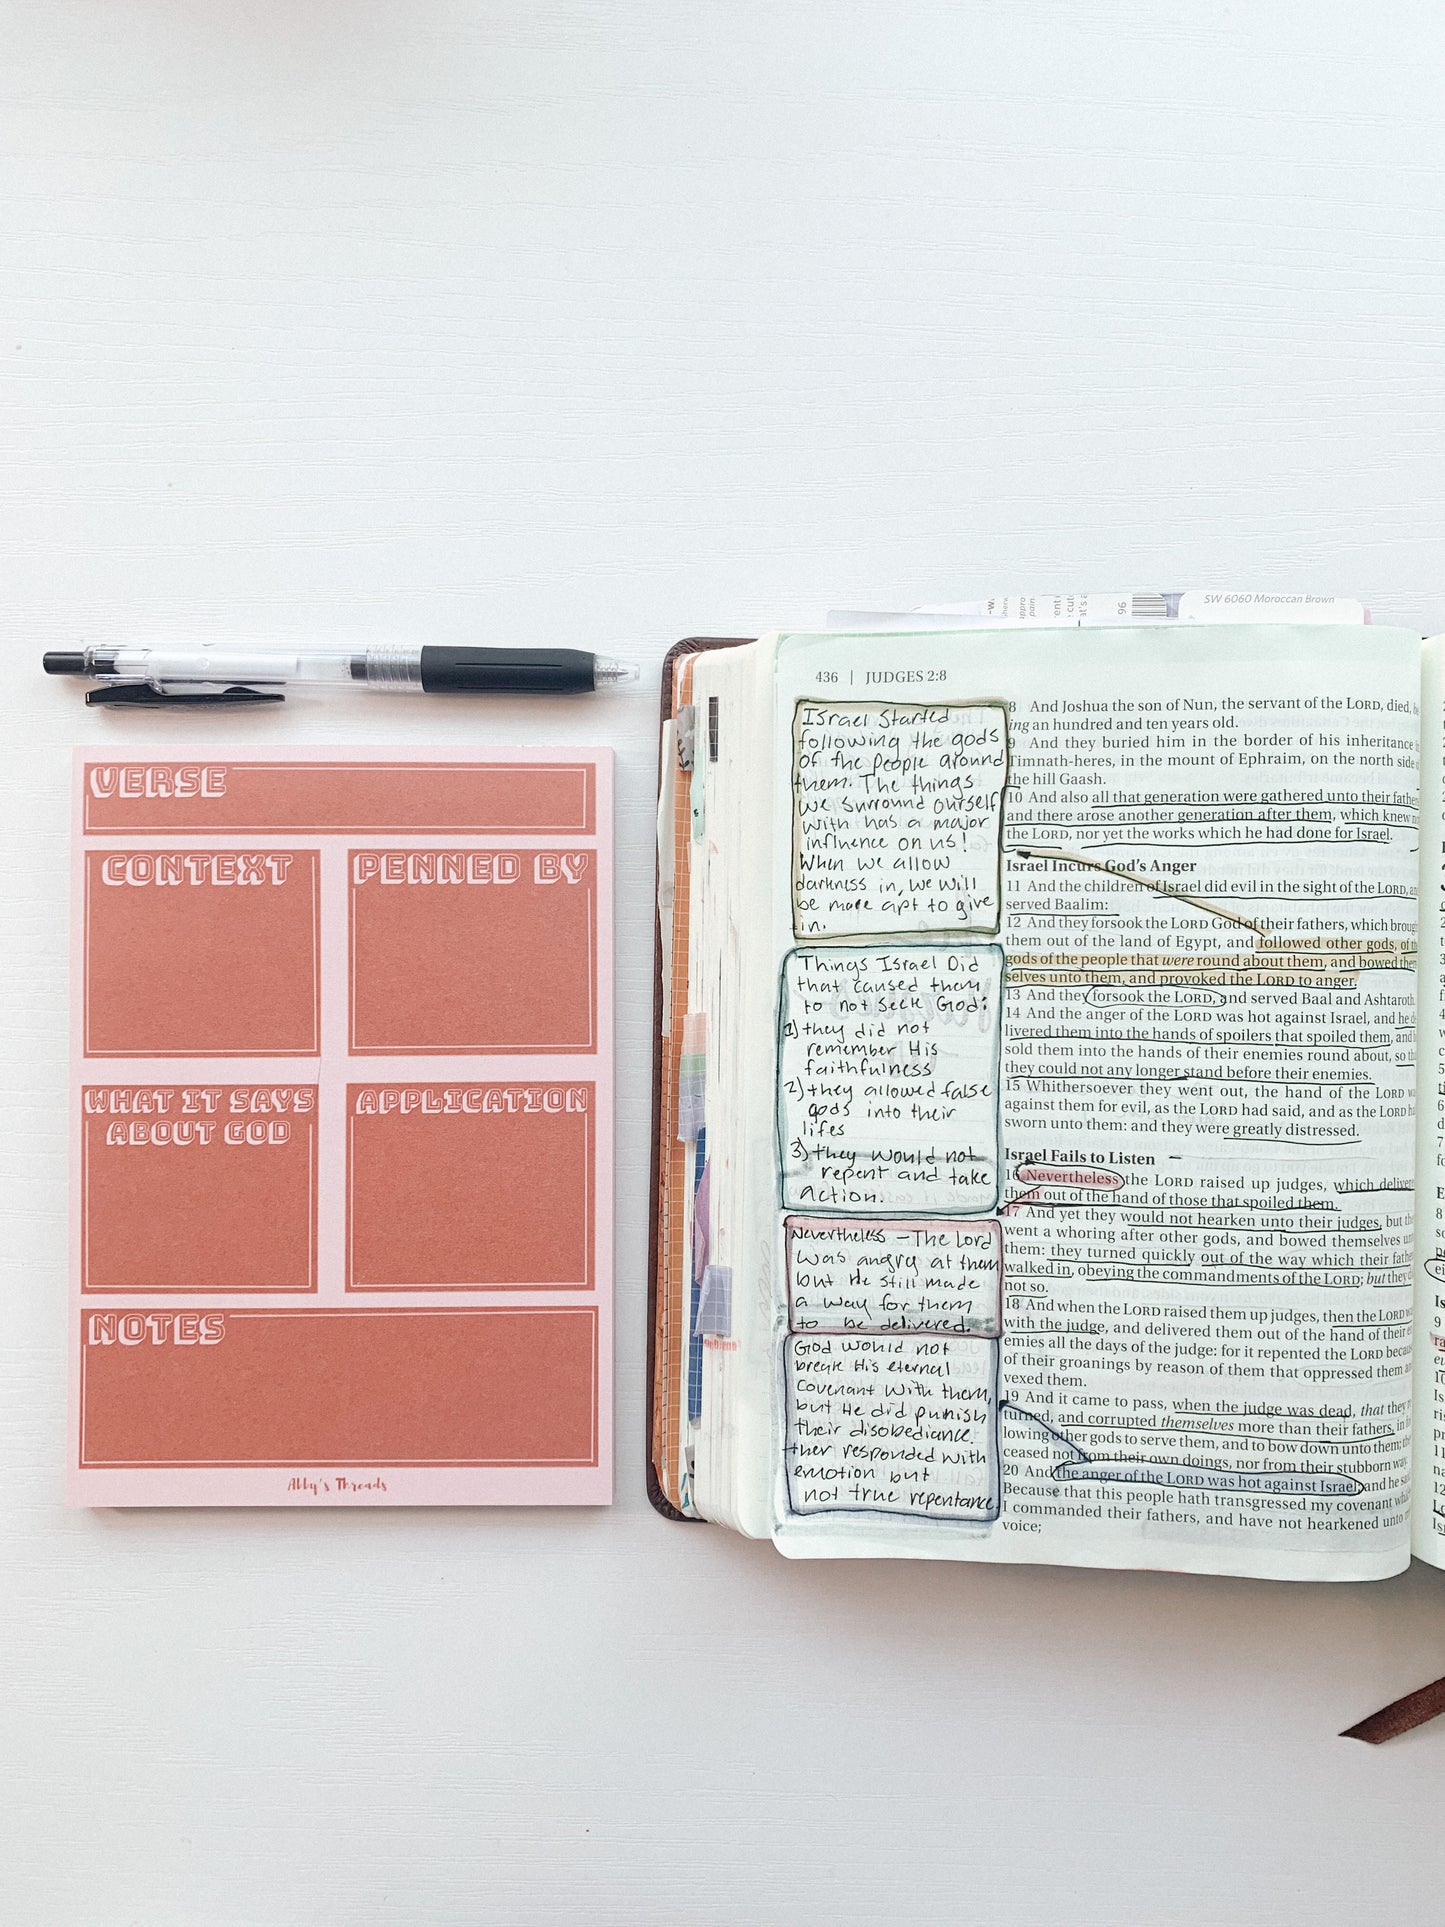 SW 6060 Moroccan Brown
96
VERSE
CONTEXT
PENNED BY
WHAT IT SAYS
ABOUT GOD
APPLICATION
NOTES
Abby's Threads
436 | JUDGES 2:8
Israel Started
following the gods
of the people around
them. The things
we surround ourself
with has a major
influence on us!
When we allow
darkness in, we will
be more apt to give
in.
Things Israel Did
that caused them
to not seek God:
1) they did not
remember His
faithfulness
2) they allowed false
gods into their
lifes
3) they would not
repent and take
action.
Nevertheless - The Lord
was angry at them
but He still made
a way for them
to be delivered.
God would not
break His eternal
covenant with them,
but He did punish
their disobedience.
ther responded with
emotion but
not true repentance.
8 And Joshua the son of Nun, the servant of the LORD, died,
ing an hundred and ten years old.
9 And they buried him in the border of his inheritance
Timnath-heres, in the mount of Ephraim, on the north side
the hill Gaash.
10 And also all that generation were gathered unto their
and there arose another generation after them, which knew
the LORD, nor yet the works which he had done for Israel.
Israel Incurs God's Anger
11 And the children of Israel did evil in the sight of the LORD,
served Baalim:
12 And they forsook the LORD God of their fathers, which
them out of the land of Egypt, and followed other gods, of
gods of the people that were round about them, and bowed
selves unto them, and provoked the LORD to anger.
13 And they forsook the LORD, and served Baal and Ashtaroth.
14 And the anger of the LORD was hot against Israel, and he
livered them into the hands of spoilers that spoiled them, and
sold them into the hands of their enemies round about, so
they could not any longer stand before their enemies.
15 Whithersoever they went out, the hand of the LORD
against them for evil, as the LORD had said, and as the LORD
sworn unto them: and they were greatly distressed.
Israel Fails to Listen
16 Nevertheless the LORD raised up judges, which
them out of the hand of those that spoiled them.
17 And yet they would not hearken unto their judges, but
went a whoring after other gods, and bowed themselves
them: they turned quickly out of the way which their
walked in, obeying the commandments of the LORD; but they
not so.
18 And when the LORD raised them up judges, then the LORD
with the judge, and delivered them out of the hand of their
emies all the days of the judge: for it repented the LORD
of their groanings by reason of them that oppressed them
vexed them.
19 And it came to pass, when the judge was dead, that they
turned, and corrupted themselves more than their fathers, in
lowing other gods to serve them, and to bow down unto them;
ceased not from their own doings, nor from their stubborn way.
20 And the anger of the LORD was hot against Israel; and he
Because that this people hath transgressed my covenant
I commanded their fathers, and have not hearkened unto
voice;